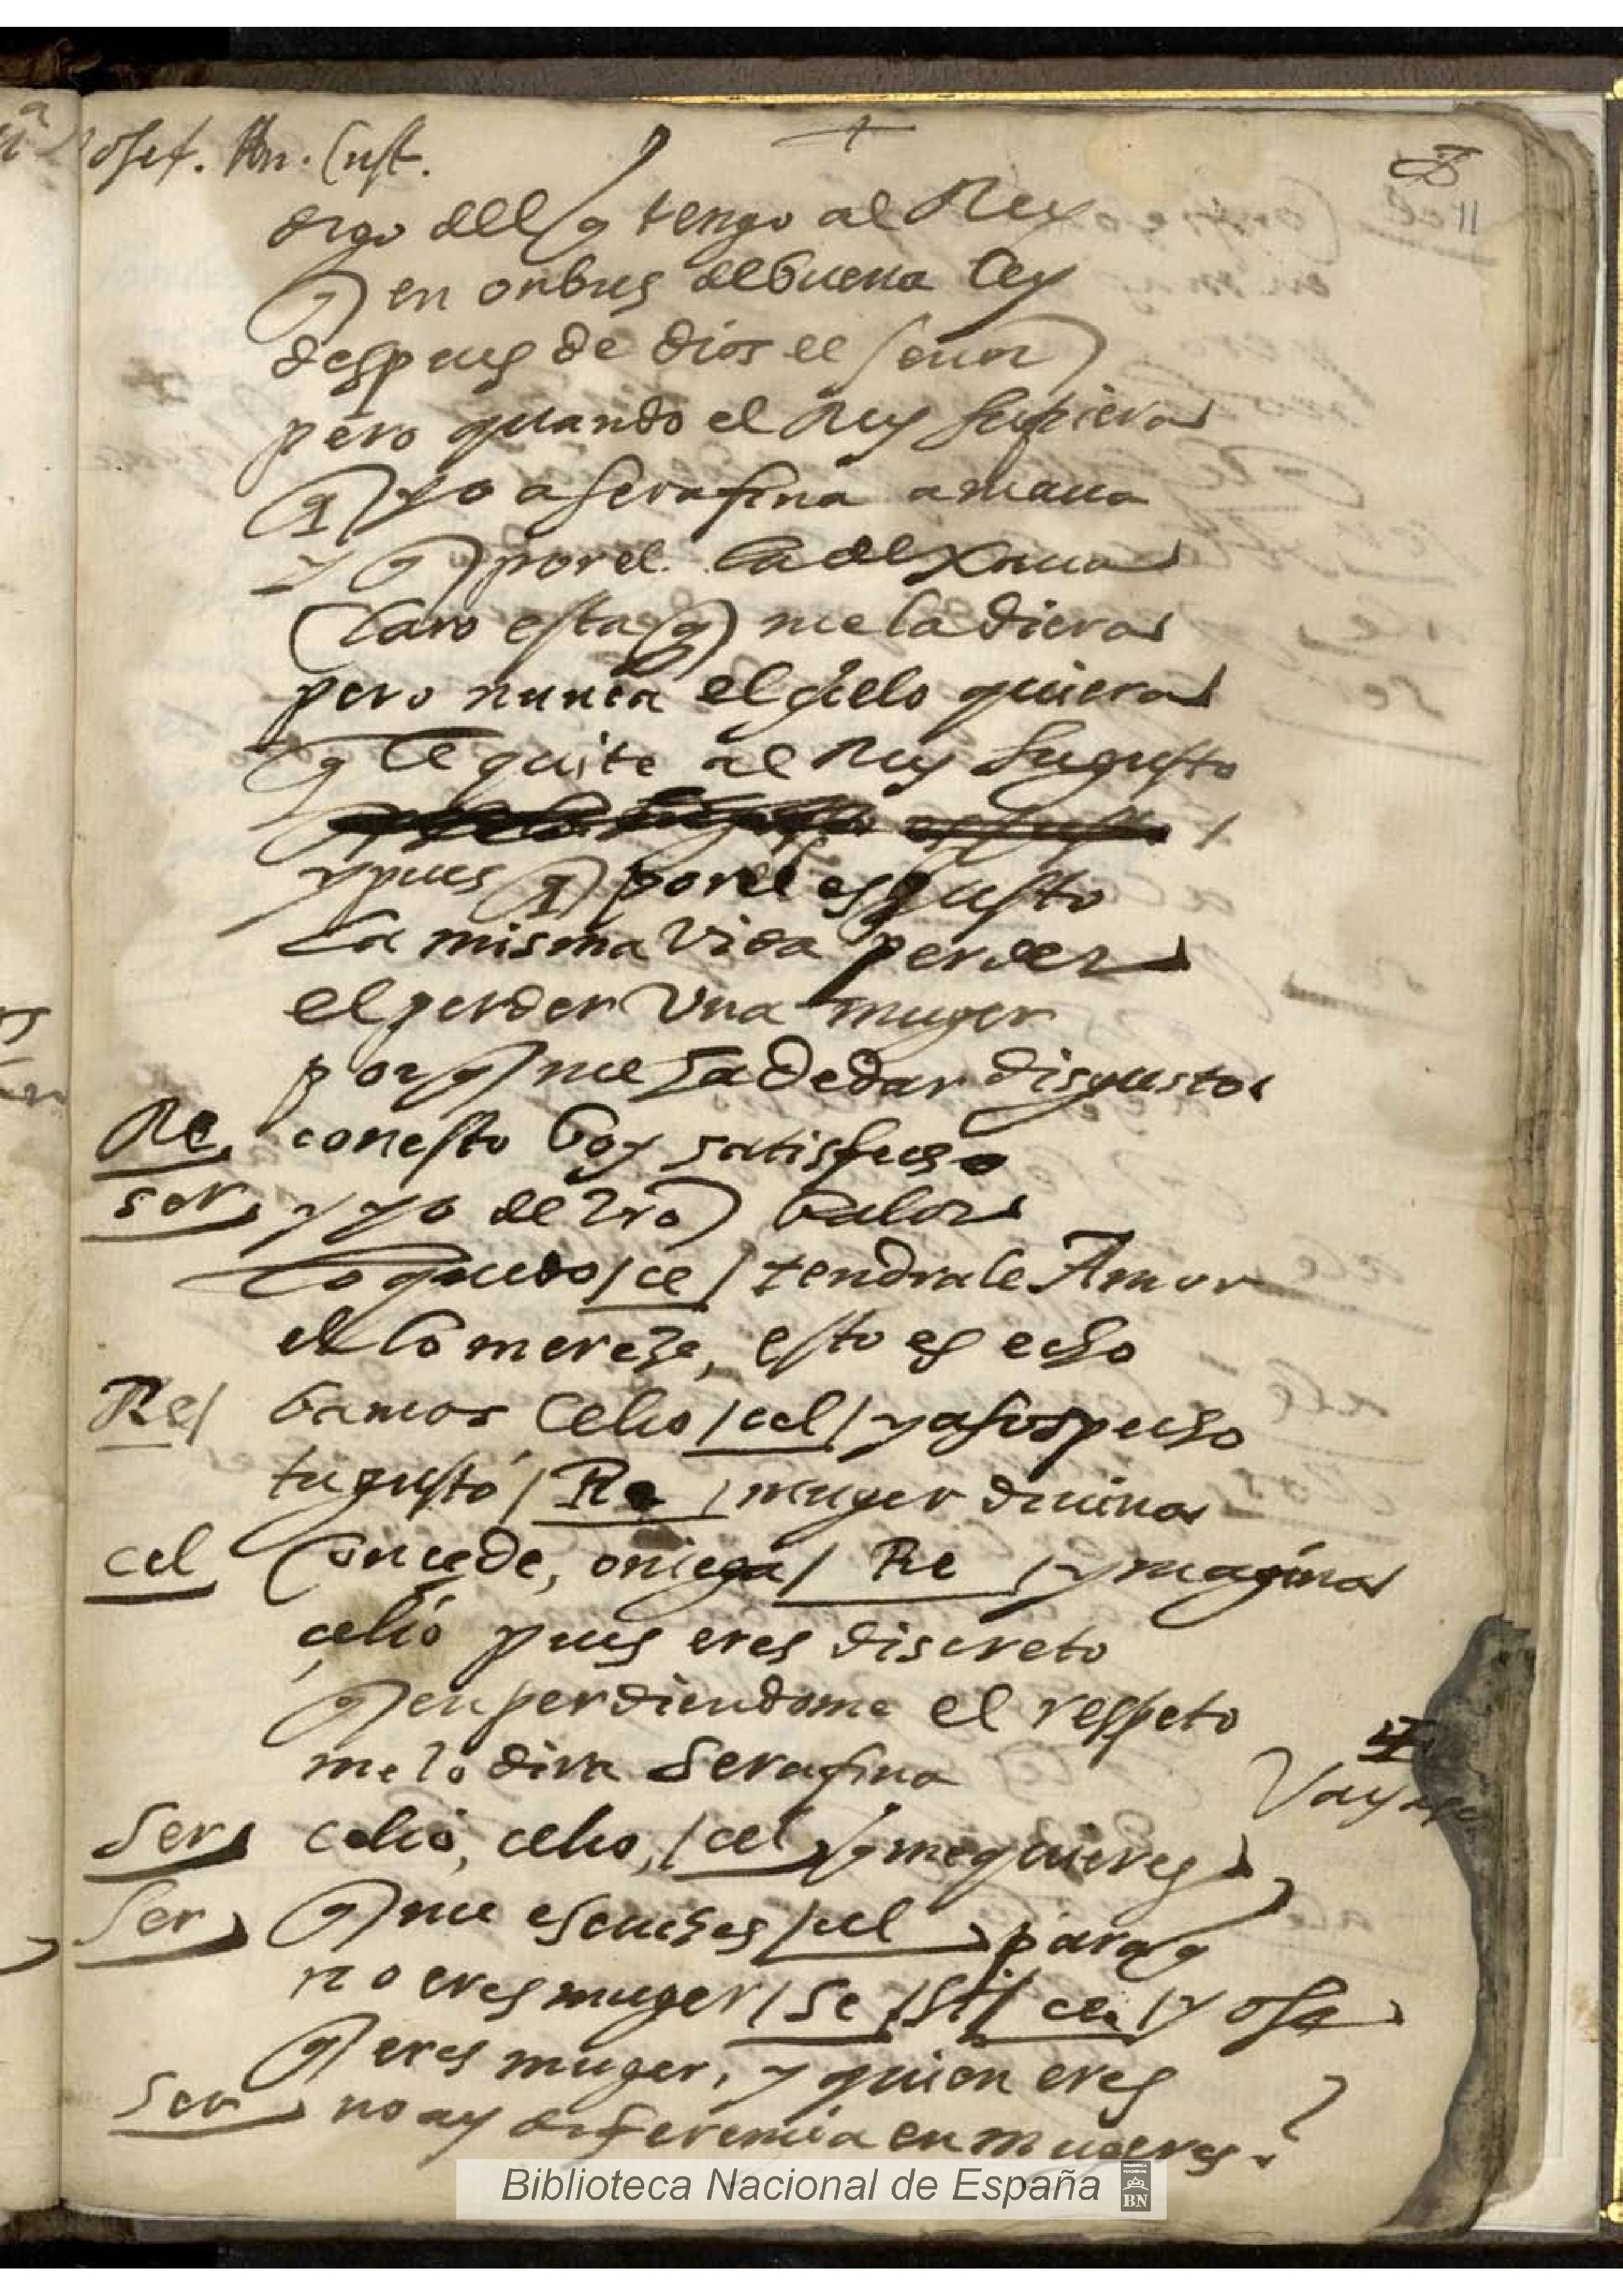 Josef. Custo.
digo del q tengo al Rey
q en onbres de buena ley
despues de dios el señor
pero quando el Rey supiera
q yo a serafina amaua
y q por el la dexaua
claro esta q me la diera
pero nunca el çielo quiera
q le quite al Rey su gusto
y pues q por el es justo
la misma vida perder
el perder vna muger
por q me ha de dar disgusto
Re con esto boy satisfecho
ser y yo de vro balor
lo quedo / ce / tendrale Amor
el lo mereze, esto es echo
Re / bamos Celio / cel / ya sospecho
tu gusto / Re / muger diuina
cel concede, o niega / Re / ymagina
celio pues eres discreto
q en perdiendome el respeto
me lo dira Serafina
Ser celio, celio, / cel / q me quieres
Ser q me escuches / cel para q
no eres muger / Se / Si / cel / y ose
q eres muger, y quien eres
Ser no ay diferencia en mugeres?
Biblioteca Nacional de España
BN